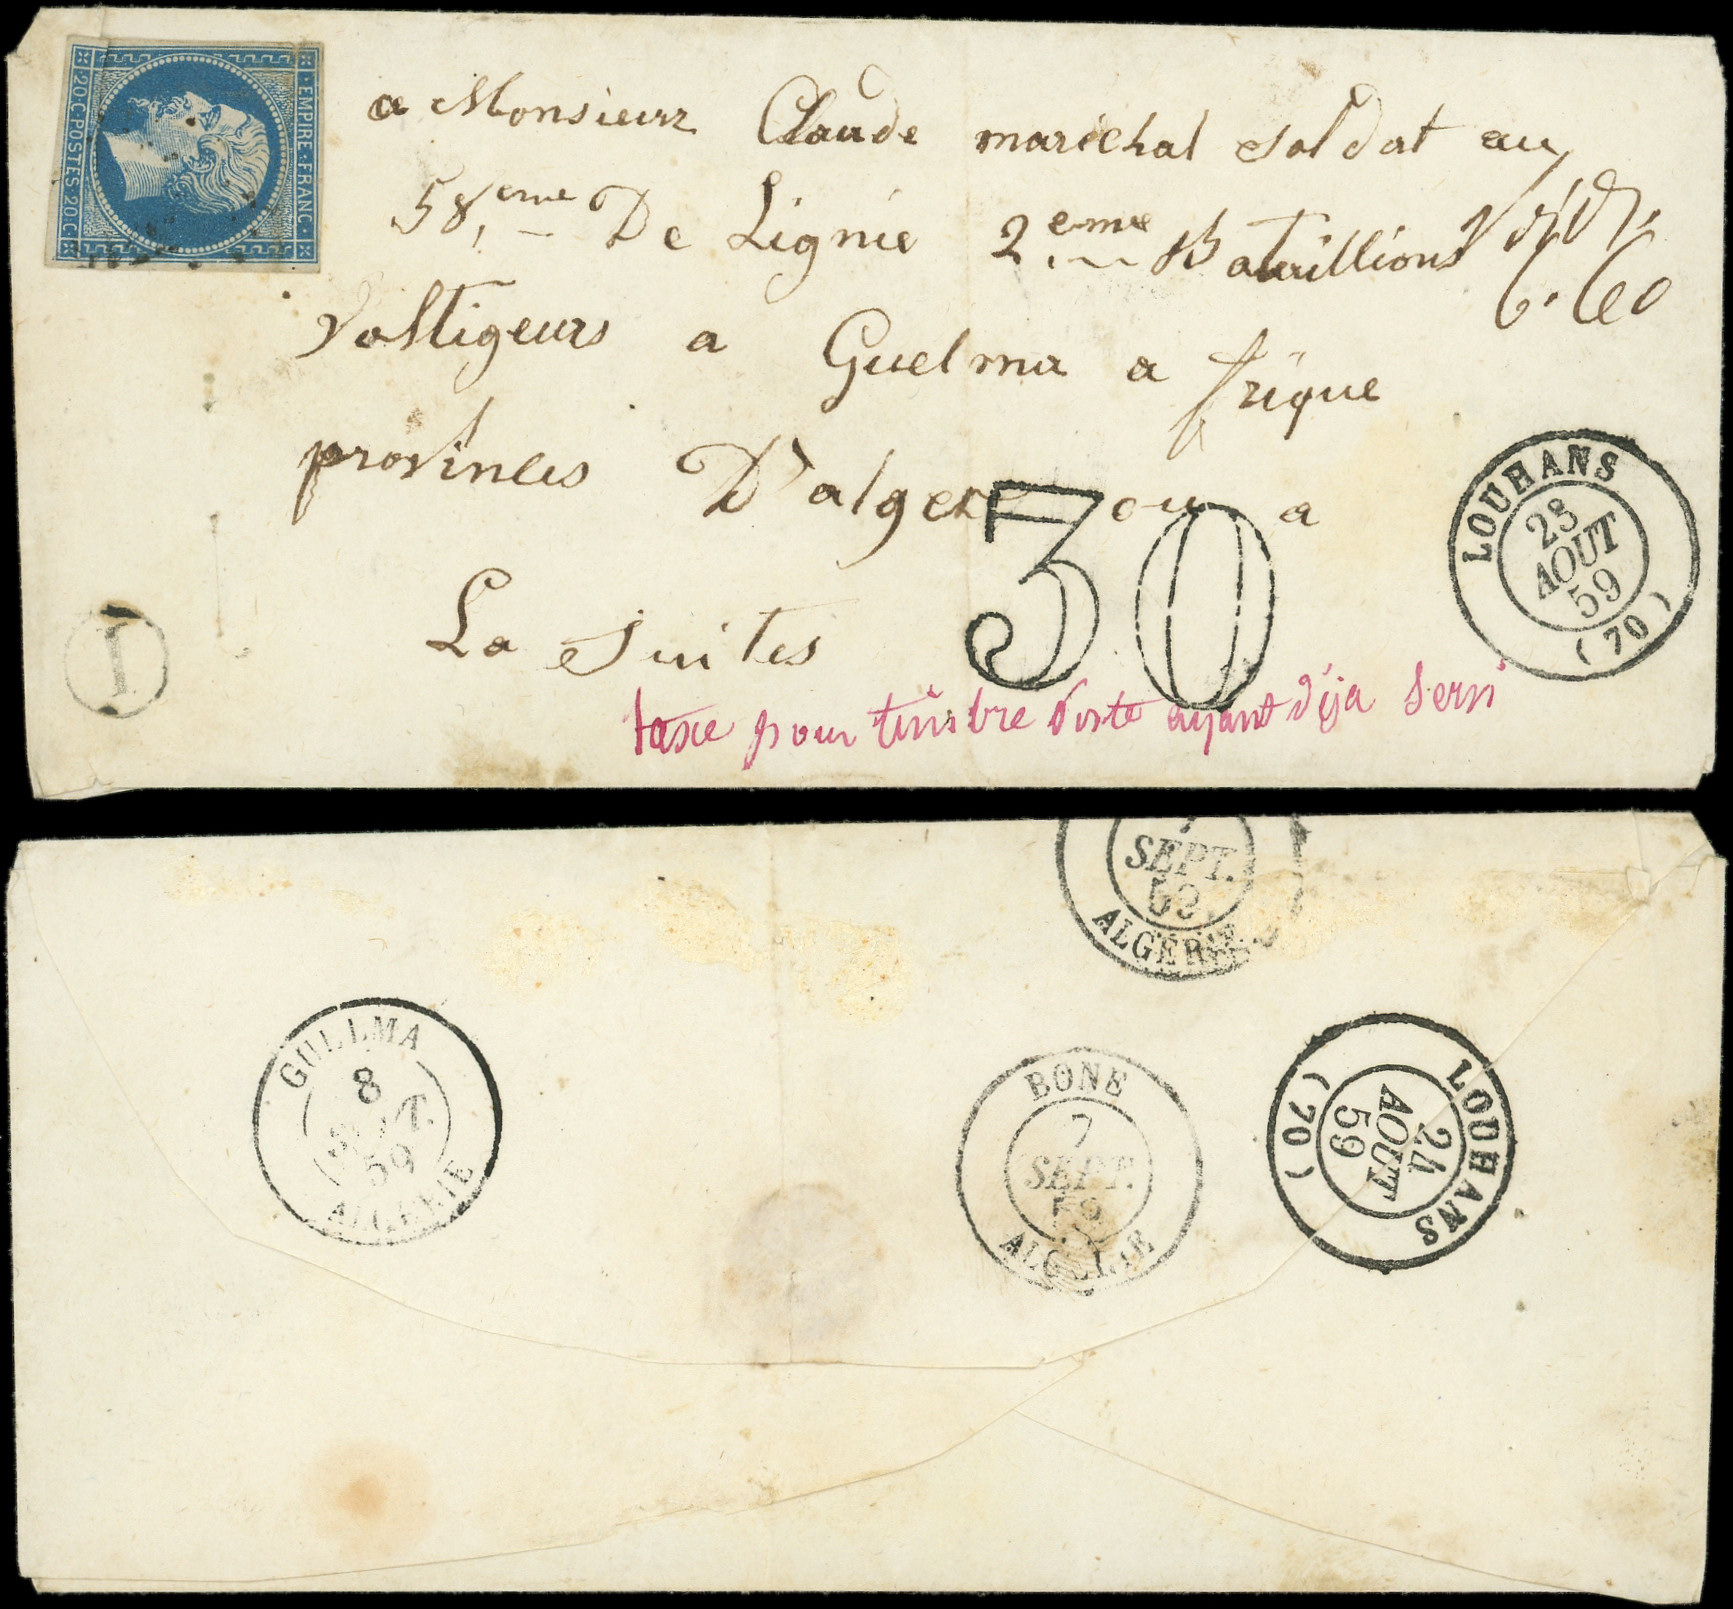 EMPIRE·FRANC·
20·C·POSTES·20·C·
a Monsieur Claude marechal soldat au
58,eme De Lignie 2eme Bataillions
voltigeurs a Guelma a frique
provinces D'alger ou a
La suites
30
LOUHANS
28
AOUT
59
(70)
I
taxe pour timbre Poste ayant déja servi
SEPT.
ALGÉRIE
GUELMA
8
SEPT.
59
ALGERIE
BONE
7
SEPT.
59
ALGERIE
LOUHANS
24
AOUT
59
(70)